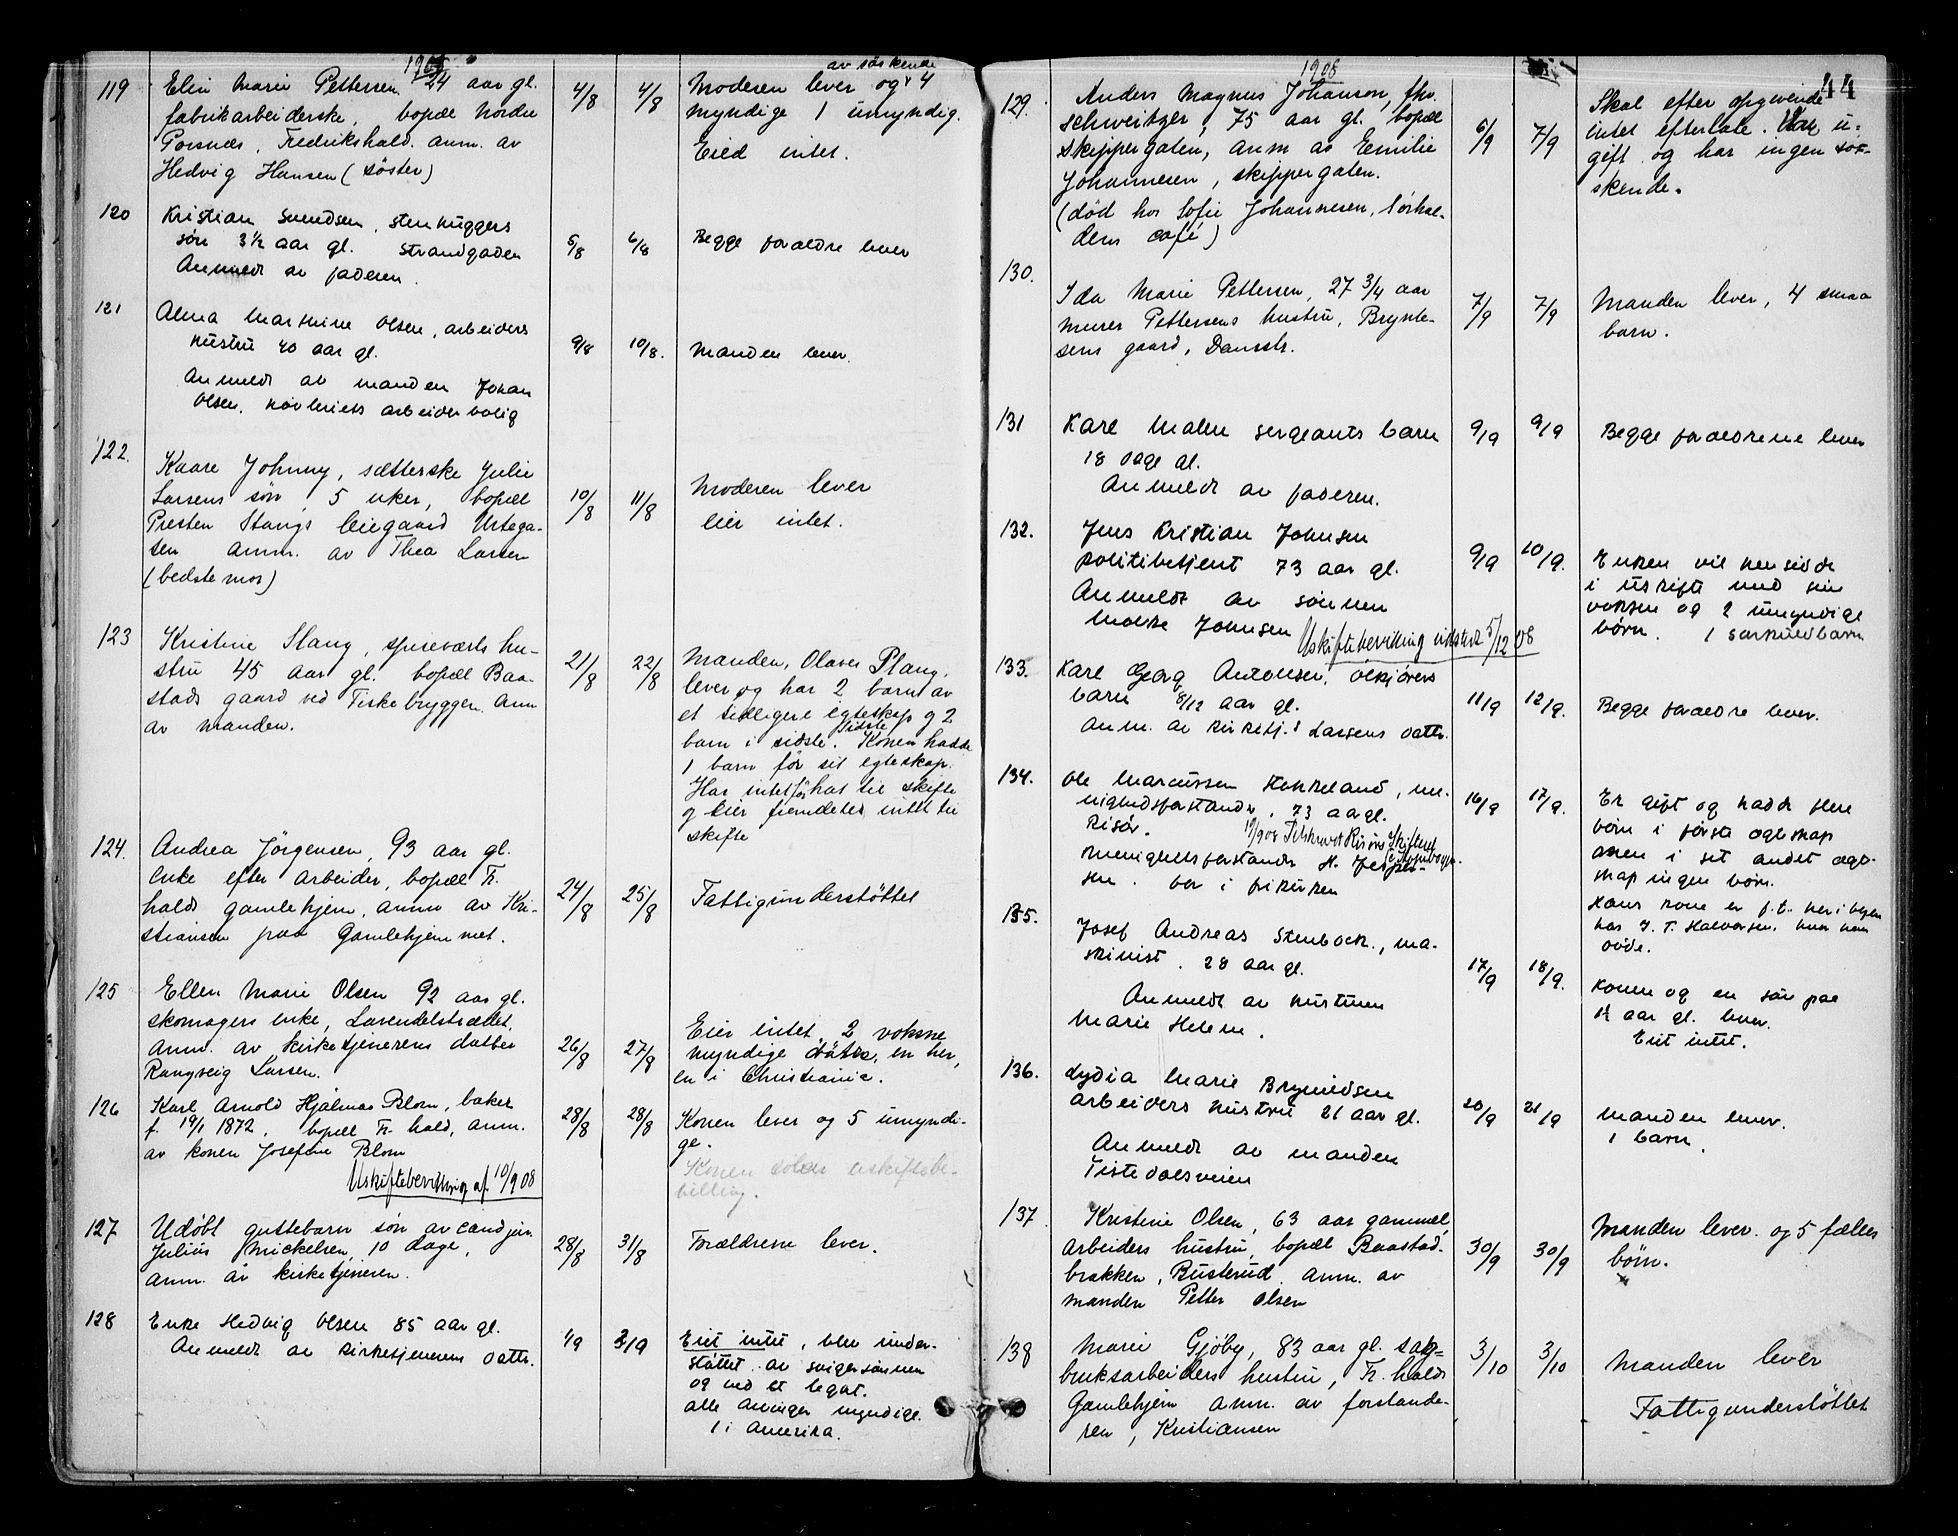 1908
119 Elin Marie Pettersen 24 aar gl. 4/8 4/8 Moderen lever og 4 av söskende
fabrikarbeiderske, bopæl Nordre myndige 1 umyndig.
Porsnæs, Fredrikshald. anm. av Eied intet.
Hedvig Hansen (söster)
120 Kristian Svendsen, stenhuggers
sön 3½ aar gl. Strandgaden 5/8 6/8 Begge forældre lever
Anmeldt av faderen.
121 Alma Marthine Olsen, arbeiders
hustru 40 aar gl. 9/8 10/8. Manden lever.
Anmeldt av manden Johan
Olsen, arbeiderbolig
122. Kaare Johnny, sætterske Julie
Larsens sön, 5 uker, bopæl 10/8 11/8 Moderen lever
Presten Stangs leiegaard Urtega- eier intet.
ten anm. av Thea Larsen
(bedstemor)
123 Kristine Stang, spiseværts hu-
stru 45 aar gl. bopæl Baa- 21/8 22/8 Manden, Olaves Stang,
stads gaard ved Fiskebryggen. Anm lever og har 2 barn av
av manden. et tidligere egteskap og 2
barn i sidste. Konen hadde
1 barn för sit egteskap.
Har intet för hat til skifte
og eier fremdeles intet til
skifte
124. Andrea Jörgensen, 93 aar gl.
enke efter arbeider, bopæl Fr. 24/8 25/8 Fattigunderstöttet
halds gamlehjem, anm av Kri-
stiansen paa Gamlehjemmet.
125 Ellen Marie Olsen 92 aar gl.
skomagers enke, Lavendelstrædet, Eier intet, 2 voksne
Anm. av kirketjenerens datter 26/8 27/8 myndige dötre, en her,
Rangveig Larsen. en i Christiania.
126 Karl Arnold Hjalmar Blom, baker
f. 19/1 1872, bopæl Fr. hald, anm. 28/8 28/8 Konen lever og 5 umyndi-
av konen Josefine Blom ge.
Uskiftebevilling af 10/9 08 Konen söker uskiftebe-
villing.
127 Udöbt guttebarn sön av cand jur.
Julius Mickelsen, 10 dage, 28/8 31/8 Forældrene lever.
anm. av kirketjeneren.
128 Enke Hedvig Olsen 85 aar gl.
Anmeldt av kirketjenerens dattr. 1/9 3/9 Eiet intet, blev under-
stöttet av svigersönnen
og ved et legat.
alle arvinger myndige.
1 i Amerika.
1908
44
129. Anders Magnus Johanson, fhv. Skal efter opgivende
schweitzer, 75 aar gl. bopæl 6/9 7/9 intet efterlate. Var u-
Skippergaten, anm av Emilie gift og har ingen sös-
Johannesen, Skippergaten. skende.
(död hos Sofie Johannesen,
café)
130. Ida Marie Pettersen, 27 3/4 aar 7/9 7/9 Manden lever, 4 smaa
murer Pettersens hustru, Brynte- barn.
sens gaard, Damstr.
131 Karl Malm sergeants barn 9/9 9/9 Begge forældrene lever
18 dage gl.
Anmeldt av faderen.
132. Jens Kristian Johnsen
politibetjent 73 aar gl. 9/9 10/9. Enken vil hensidde
Anmeldt av sönnen i uskifte med sin
Johnsen voksen og 2 umyndige
Uskiftebevilling utstedt 5/12 08 börn. 1 særkuldbarn
133. Karl Georg Antonsen, ölkjörers
barn 8/12 aar gl. 11/9 12/9. Begge forældre lever.
Anm. av kirketj. Larsens dattr.
134. Ole Marcussen Hekkeland, me-
nighedsforstander, 73 aar gl. 16/9 17/9. Er gift og hadde flere
Risör. 19/9 08 Tilskrevet Risörs Skifteret börn i förste egteskap
menighetsforstander H. Jesper- men i sit andet egte-
sen. skap ingen börn.
Hans kone er f.t. her i byen
hos J. T. Halvorsen, hvor han
döde.
135. Josef Andreas Stenbock, ma-
skinist. 28 aar gl. 17/9 18/9.
Anmeldt av hustruen Konen og en sön paa
Marie Helene. 1½ aar gl. lever.
Eiet intet.
136. Lydia Marie Brynildsen
arbeiders hustru 21 aar gl. 20/9 21/9 Manden lever.
Anmeldt av manden 1 barn.
Tistedalsveien
137. Kristine Olsen, 63 aar gammel Manden lever. og 5 fælles
arbeiders hustru, bopæl Baastad- 30/9 30/9 börn.
brakken, Busterud. anm. av
manden Petter Olsen
138 Marie Gjöby, 83 aar gl. sag- 3/10 3/10 Manden lever
bruksarbeiders hustru, Fr. halds Fattigunderstöttet
Gamlehjem anm. av forstande-
ren, Kristiansen